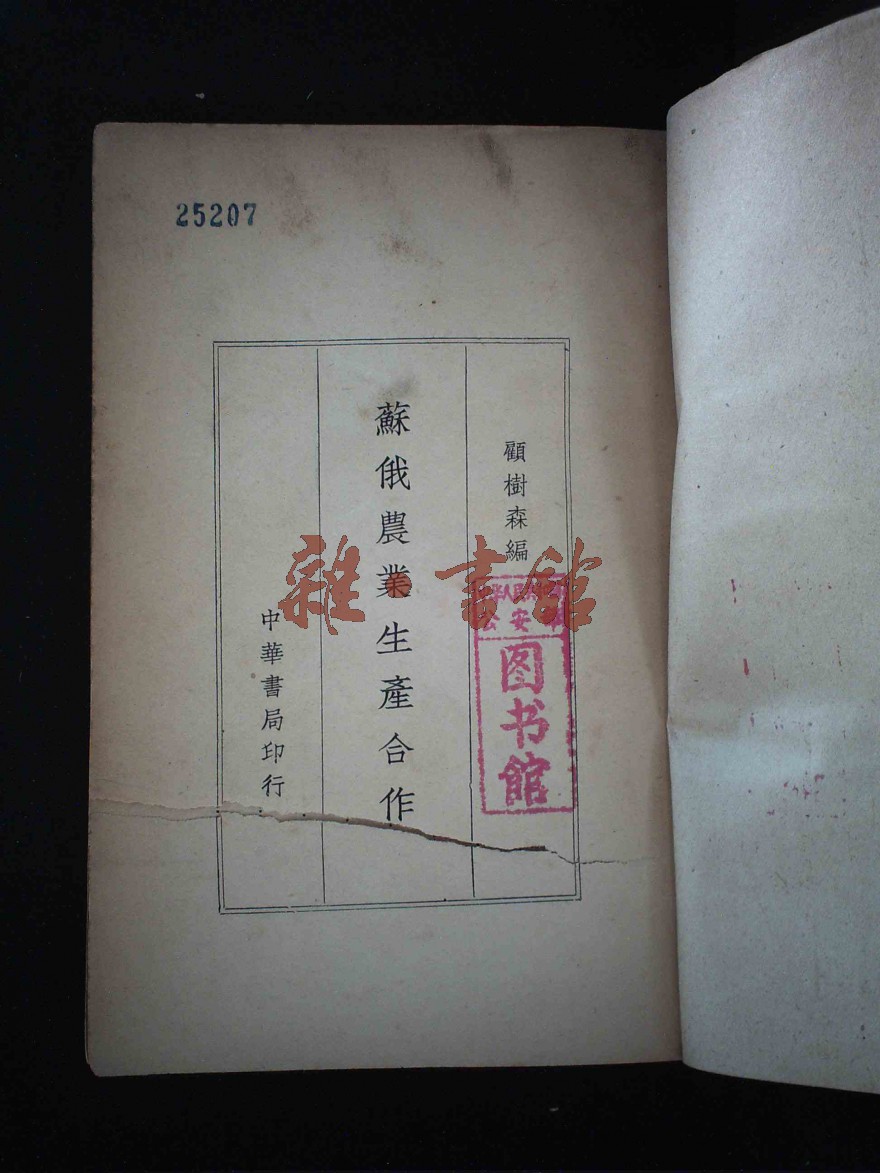 25207
顧樹森編
蘇俄農業生產合作
中華書局印行
雜·書館
公安
图书馆